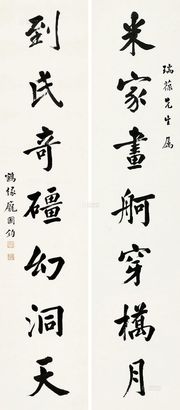 瑞葆先生属
米家畫舸穿月
到氏奇礓幻洞天
鶴缘龐國鈞